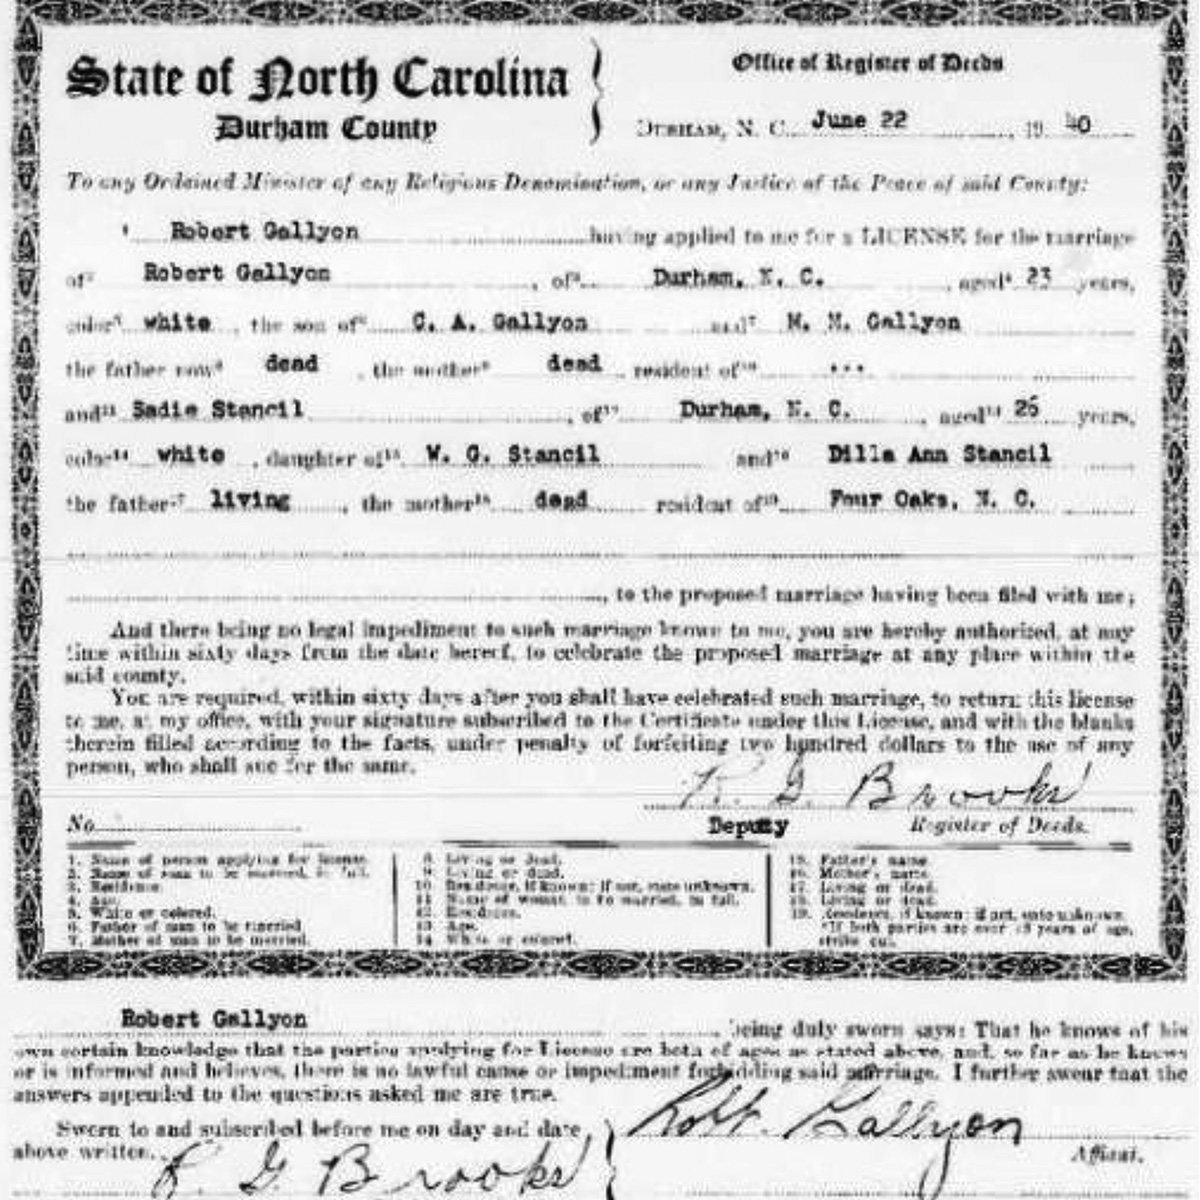 State of North Carolina
Durham County
Office of Register of Deeds
DURHAM, N. C. June 22, 1940
To any Ordained Minister of any Religious Denomination, or any Justice of the Peace of said County:
1 Robert Gallyon having applied to me for a LICENSE for the marriage
of2 Robert Gallyon, of3 Durham, N. C., aged4 23 years,
color5 white, the son of6 C. A. Gallyon and7 M. M. Gallyon
the father now8 dead, the mother9 dead resident of10 ...
and11 Sadie Stancil, of12 Durham, N. C., aged13 26 years,
color14 white, daughter of15 W. G. Stancil and16 Dilla Ann Stancil
the father17 living, the mother18 dead resident of19 Four Oaks, N. C.
, to the proposed marriage having been filed with me;
And there being no legal impediment to such marriage known to me, you are hereby authorized, at any
time within sixty days from the date hereof, to celebrate the proposed marriage at any place within the
said county.
You are required, within sixty days after you shall have celebrated such marriage, to return this license
to me, at my office, with your signature subscribed to the Certificate under this License, and with the blanks
therein filled according to the facts, under penalty of forfeiting two hundred dollars to the use of any
person, who shall sue for the same.
R. G. Brooks
No.
Deputy Register of Deeds.
1. Name of person applying for license.
2. Name of man to be married, in full.
3. Residence.
4. Age.
5. White or colored.
6. Father of man to be married.
7. Mother of man to be married.
8. Living or dead.
9. Living or dead.
10. Residence, if known; if not, state unknown.
11. Name of woman to be married, in full.
12. Residence.
13. Age.
14. White or colored.
15. Father's name.
16. Mother's name.
17. Living or dead.
18. Living or dead.
19. Residence, if known; if not, state unknown.
*If both parties are over 18 years of age,
strike out.
Robert Gallyon, being duly sworn says: That he knows of his
own certain knowledge that the parties applying for License are both of ages as stated above, and, so far as he knows
or is informed and believes, there is no lawful cause or impediment forbidding said marriage. I further swear that the
answers appended to the questions asked me are true.
Sworn to and subscribed before me on day and date
above written.
R G Brooks
Robt. Gallyon
Affiant.